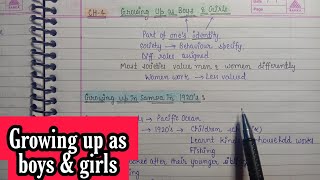 CH-4 Growing Up as Boys & Girls
Part of one's identity
Society → Behaviour specify
Diff roles assigned
Most societies value men & women differently
Women work → Less valued
Growing up in Samoa in 1920's :
→ Pacific Ocean
→ 1920's → Children
Learnt household works
Fishing
after their younger
Growing up as
boys & girls